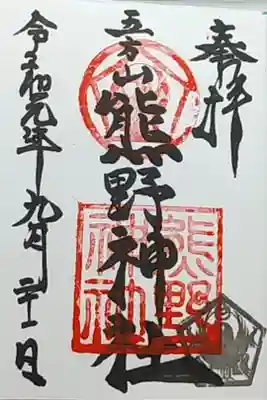 奉拝
五方山
熊野神社
熊野
神社
令和元年九月二十一日